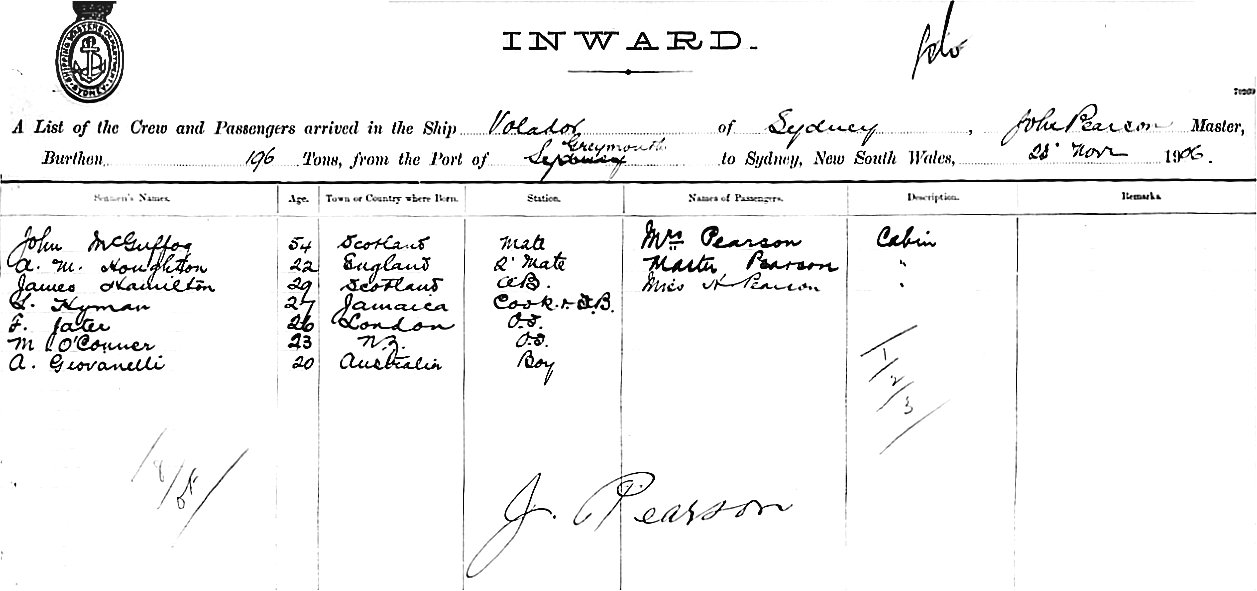 SHIPPING MASTERS DEPARTMENT SYDNEY
INWARD.
A List of the Crew and Passengers arrived in the Ship Volador of Sydney, John Pearson Master,
Greymouth
Burthen 196 Tons, from the Port of Sydney to Sydney, New South Wales, Novr 1906.
Seamen's Names. Age. Town or Country where Born. Station. Names of Passengers. Description. Remarks
John McGuffog 54 Scotland Mate Mrs Pearson Cabin
A. M. Houghton 22 England 2' Mate Master Pearson "
James Hamilton 29 Scotland A.B. Miss H Pearson "
Hyman 27 Jamaica Cook & A.B.
F. Jater 26 London O.S.
M O'Conner 23 N.Z. O.S.
A. Geovanelli 20 Australia Boy
1/2/3
J. Pearson